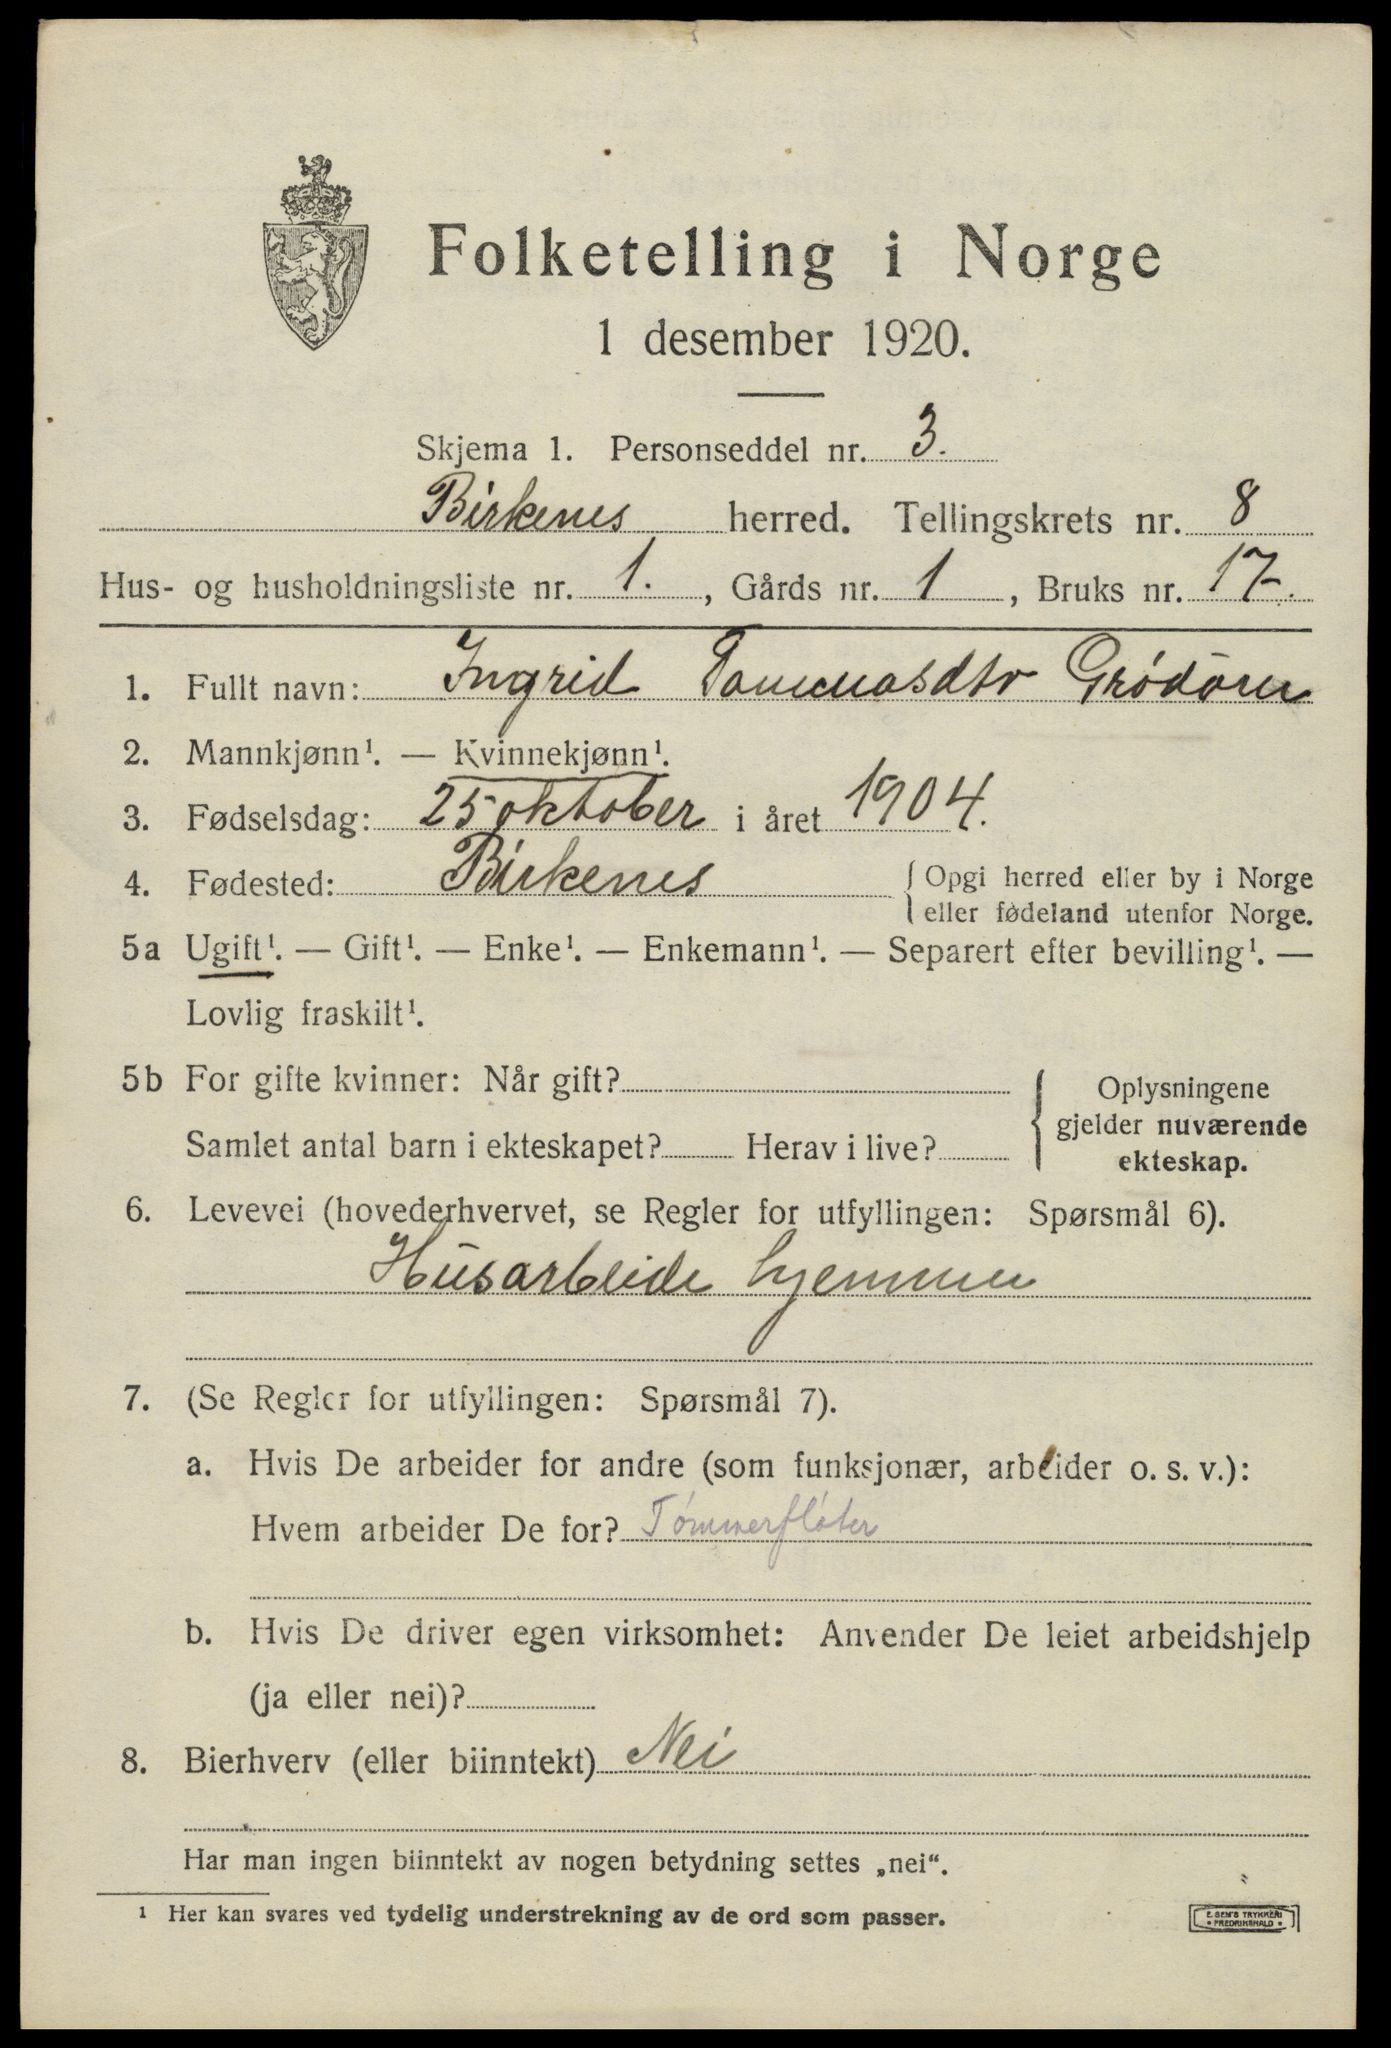 Folketelling i Norge
1 desember 1920.
Skjema 1. Personseddel nr. 3.
Birkenes herred. Tellingskrets nr. 8
Hus- og husholdningsliste nr. 1. , Gårds nr. 1 , Bruks nr. 17.
1. Fullt navn: Ingrid Tommasdtr
2. Mannkjønn¹. — Kvinnekjønn¹.
3. Fødselsdag: 25 oktober i året 1904.
4. Fødested: Birkenes { Opgi herred eller by i Norge
eller fødeland utenfor Norge.
5a Ugift¹. — Gift¹. — Enke¹. — Enkemann¹. — Separert efter bevilling¹. —
Lovlig fraskilt¹.
5b For gifte kvinner: Når gift? { Oplysningene
gjelder nuværende
Samlet antal barn i ekteskapet? Herav i live?
ekteskap.
6. Levevei (hovederhvervet, se Regler for utfyllingen: Spørsmål 6).
Husarbeide hjemme
7. (Se Regler for utfyllingen: Spørsmål 7).
a. Hvis De arbeider for andre (som funksjonær, arbeider o. s. v.):
Hvem arbeider De for? Tømmerfløter
b. Hvis De driver egen virksomhet: Anvender De leiet arbeidshjelp
(ja eller nei)?
8. Bierhverv (eller biinntekt) Nei
Har man ingen biinntekt av nogen betydning settes „nei“.
¹ Her kan svares ved tydelig understrekning av de ord som passer.
E. SEM'S TRYKKERI
• FREDRIKSHALD •